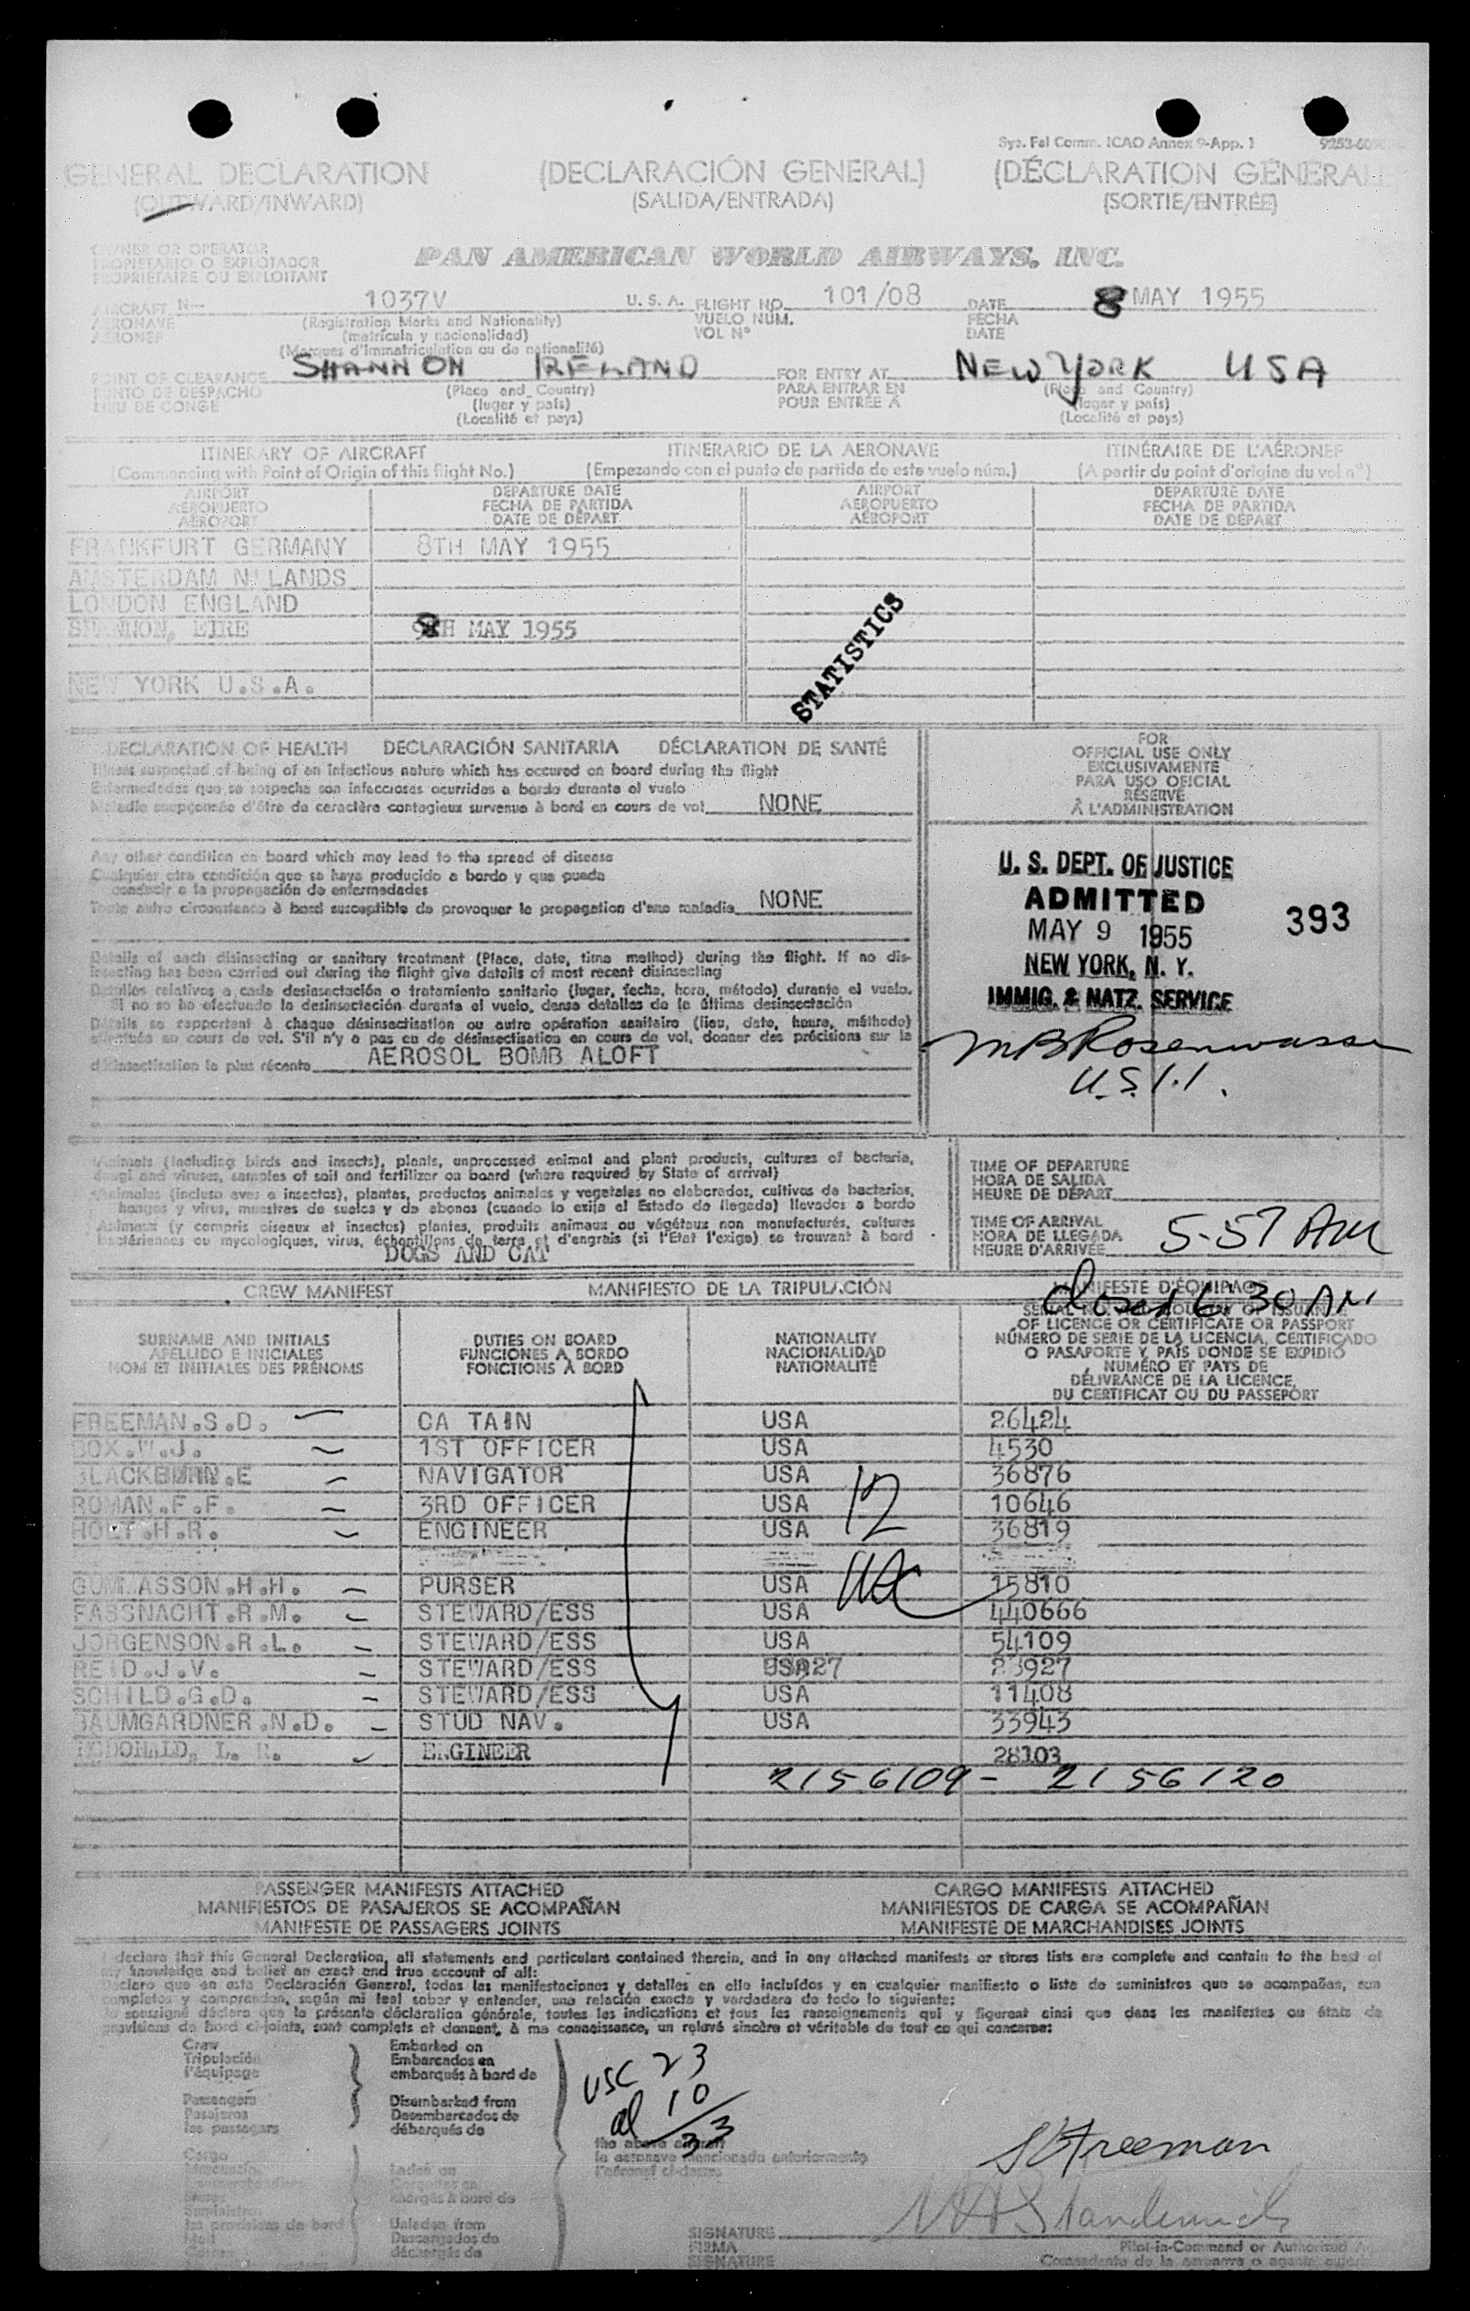 Sys. Fal Comm. ICAO Annex 9-App. 1
GENERAL DECLARATION (DECLARACIÓN GENERAL) (DÉCLARATION GÉNÉRALE
(OUTWARD/INWARD) (SALIDA/ENTRADA) (SORTIE/ENTRÉE)
OWNER OR OPERATOR
PROPIETARIO O EXPLOTADOR
PROPRIETAIRE OU EXPLOITANT
PAN AMERICAN WORLD AIRWAYS, INC.
AIRCRAFT N— 1037V U. S. A. FLIGHT NO. 101/08 DATE 8 MAY 1955
AERONAVE (Registration Marks and Nationality) VUELO NUM. FECHA
AERONEF (matrícula y nacionalidad) VOL N° DATE
(Marques d'immatriculation ou de nationalité)
POINT OF CLEARANCE SHANNON IRELAND FOR ENTRY AT NEW YORK USA
PUNTO DE DESPACHO (Place and Country) PARA ENTRAR EN (Place and Country)
LIEU DE CONGE (lugar y país) POUR ENTRÉE A (lugar y país)
(Localité et pays) (Localité et pays)
ITINERARY OF AIRCRAFT ITINERARIO DE LA AERONAVE ITINÉRAIRE DE L'AÉRONEF
(Commencing with Point of Origin of this flight No.) (Empezando con el punto de partida de este vuelo núm.) (A partir du point d'origine du vol n°)
AIRPORT DEPARTURE DATE AIRPORT DEPARTURE DATE
AEROPUERTO FECHA DE PARTIDA AEROPUERTO FECHA DE PARTIDA
AÉROPORT DATE DE DÉPART AÉROPORT DATE DE DÉPART
FRANKFURT GERMANY 8TH MAY 1955
AMSTERDAM N'LANDS
LONDON ENGLAND
SHANNON, EIRE 8TH MAY 1955
NEW YORK U.S.A.
STATISTICS
DECLARATION OF HEALTH DECLARACIÓN SANITARIA DÉCLARATION DE SANTÉ
Illness suspected of being of an infectious nature which has occured on board during the flight
Enfermedades que se sospecha son infecciosas ocurridas a bordo durante el vuelo
Maladie soupçonnée d'être de caractère contagieux survenue à bord en cours de vol NONE
Any other condition on board which may lead to the spread of disease
Cualquier otra condición que se haya producido a bordo y que pueda
conducir a la propagación de enfermedades
Toute autre circonstance à bord susceptible de provoquer la propagation d'une maladie NONE
Details of each disinsecting or sanitary treatment (Place, date, time method) during the flight. If no dis-
insecting has been carried out during the flight give details of most recent disinsecting
Detalles relativos a cada desinsectación o tratamiento sanitario (lugar, fecha, hora, método) durante el vuelo.
Si no se ha efectuado la desinsectación durante el vuelo, dense detalles de la última desinsectación
Détails se rapportant à chaque désinsectisation ou autre opération sanitaire (lieu, date, heure, méthode)
effectuée en cours de vol. S'il n'y a pas eu de désinsectisation en cours de vol, donner des précisions sur la
désinsectisation la plus récente AEROSOL BOMB ALOFT
FOR
OFFICIAL USE ONLY
EXCLUSIVAMENTE
PARA USO OFICIAL
RÉSERVÉ
À L'ADMINISTRATION
U. S. DEPT. OF JUSTICE
ADMITTED
MAY 9 1955 393
NEW YORK, N. Y.
IMMIG. & NATZ. SERVICE
U.S.I.I.
Animals (including birds and insects), plants, unprocessed animal and plant products, cultures of bacteria,
fungi and viruses, samples of soil and fertilizer on board (where required by State of arrival)
Animales (incluso aves e insectos), plantas, productos animales y vegetales no elaborados, cultivos de bacterias,
hongos y virus, muestras de suelos y de abonos (cuando lo exija el Estado de llegada) llevados a bordo
Animaux (y compris oiseaux et insectes) plantes, produits animaux ou végétaux non manufacturés, cultures
bactériennes ou mycologiques, virus, échantillons de terre et d'engrais (si l'État l'exige) se trouvant à bord
DOGS AND CAT
TIME OF DEPARTURE
HORA DE SALIDA
HEURE DE DÉPART
TIME OF ARRIVAL
HORA DE LLEGADA
HEURE D'ARRIVÉE 5-57 AM
closed 6 30 AM
CREW MANIFEST MANIFIESTO DE LA TRIPULACIÓN MANIFESTE D'ÉQUIPAGE
SURNAME AND INITIALS
APELLIDO E INICIALES
NOM ET INITIALES DES PRÉNOMS
DUTIES ON BOARD
FUNCIONES A BORDO
FONCTIONS À BORD
NATIONALITY
NACIONALIDAD
NATIONALITÉ
OF LICENCE OR CERTIFICATE OR PASSPORT
NÚMERO DE SERIE DE LA LICENCIA, CERTIFICADO
O PASAPORTE Y PAÍS DONDE SE EXPIDIÓ
NUMÉRO ET PAYS DE
DÉLIVRANCE DE LA LICENCE,
DU CERTIFICAT OU DU PASSEPORT
FREEMAN.S.D. CA TAIN USA 26424
BOX.W.J. 1ST OFFICER USA 4530
BLACKBURN.E NAVIGATOR USA 36876
ROMAN.F.F. 3RD OFFICER USA 10646
HOLT.H.R. ENGINEER USA 36819
12
GUM ASSON.H.H. PURSER USA 15810
FASSNACHT.R.M. STEWARD/ESS USA 440666
JORGENSON.R.L. STEWARD/ESS USA 54109
REID.J.V. STEWARD/ESS 23927
SCHILD.G.D. STEWARD/ESS USA 11408
BAUMGARDNER.N.D. STUD NAV. USA 33943
MCDONALD, L. R. ENGINEER 28103
2156109 - 2156120
PASSENGER MANIFESTS ATTACHED CARGO MANIFESTS ATTACHED
MANIFIESTOS DE PASAJEROS SE ACOMPAÑAN MANIFIESTOS DE CARGA SE ACOMPAÑAN
MANIFESTE DE PASSAGERS JOINTS MANIFESTE DE MARCHANDISES JOINTS
I declare that this General Declaration, all statements and particulars contained therein, and in any attached manifests or stores lists are complete and contain to the best of
my knowledge and belief an exact and true account of all:
Declaro que en esta Declaración General, todas las manifestaciones y detalles en ella incluídos y en cualquier manifiesto o lista de suministros que se acompañan, son
completos y comprenden, según mi leal saber y entender, una relación exacta y verdadera de todo lo siguiente:
Je soussigné déclare que la présente déclaration générale, toutes les indications et tous les renseignements qui y figurent ainsi que dans les manifestes ou états de
provisions de bord ci-joints, sont complets et donnent, à ma connaissance, un relevé sincère et véritable de tout ce qui concerne:
Crew Embarked on
Tripulación Embarcados en
l'équipage embarqués à bord de
Passengers Disembarked from
Pasajeros Desembarcados de
les passagers débarqués de
USC 23
al 10
33
the above aircraft
la aeronave mencionada anteriormente
l'aéronef ci-dessus
Cargo
Laden on
Cargados en
chargés à bord de
les provisions de bord
Unladen from
Descargados de
déchargés de
S D Freeman
SIGNATURE
FIRMA
SIGNATURE
Pilot-in-Command or Authorized
Comandante de la aeronave o agente